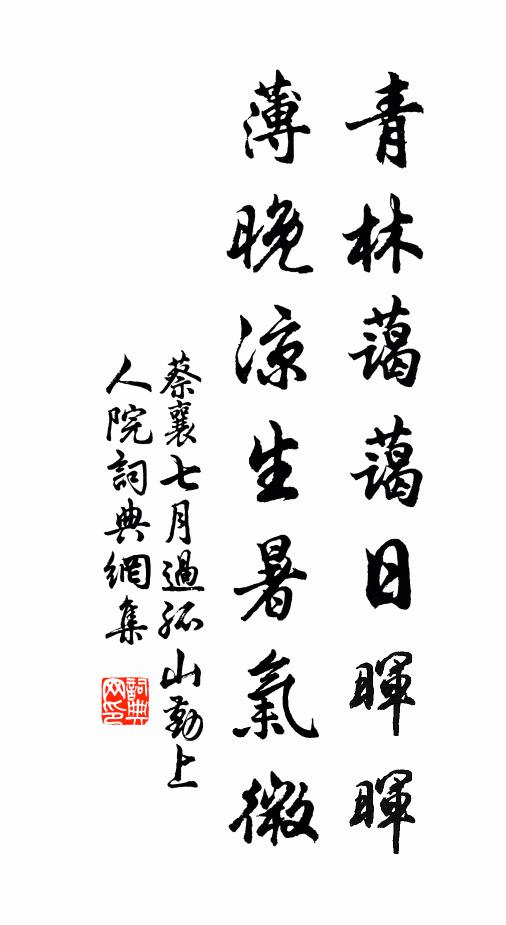 青林藹藹日暉暉
薄晚涼生暑氣微
蔡襄七月過孤山勤上
人院詞典網集
詞典
网印